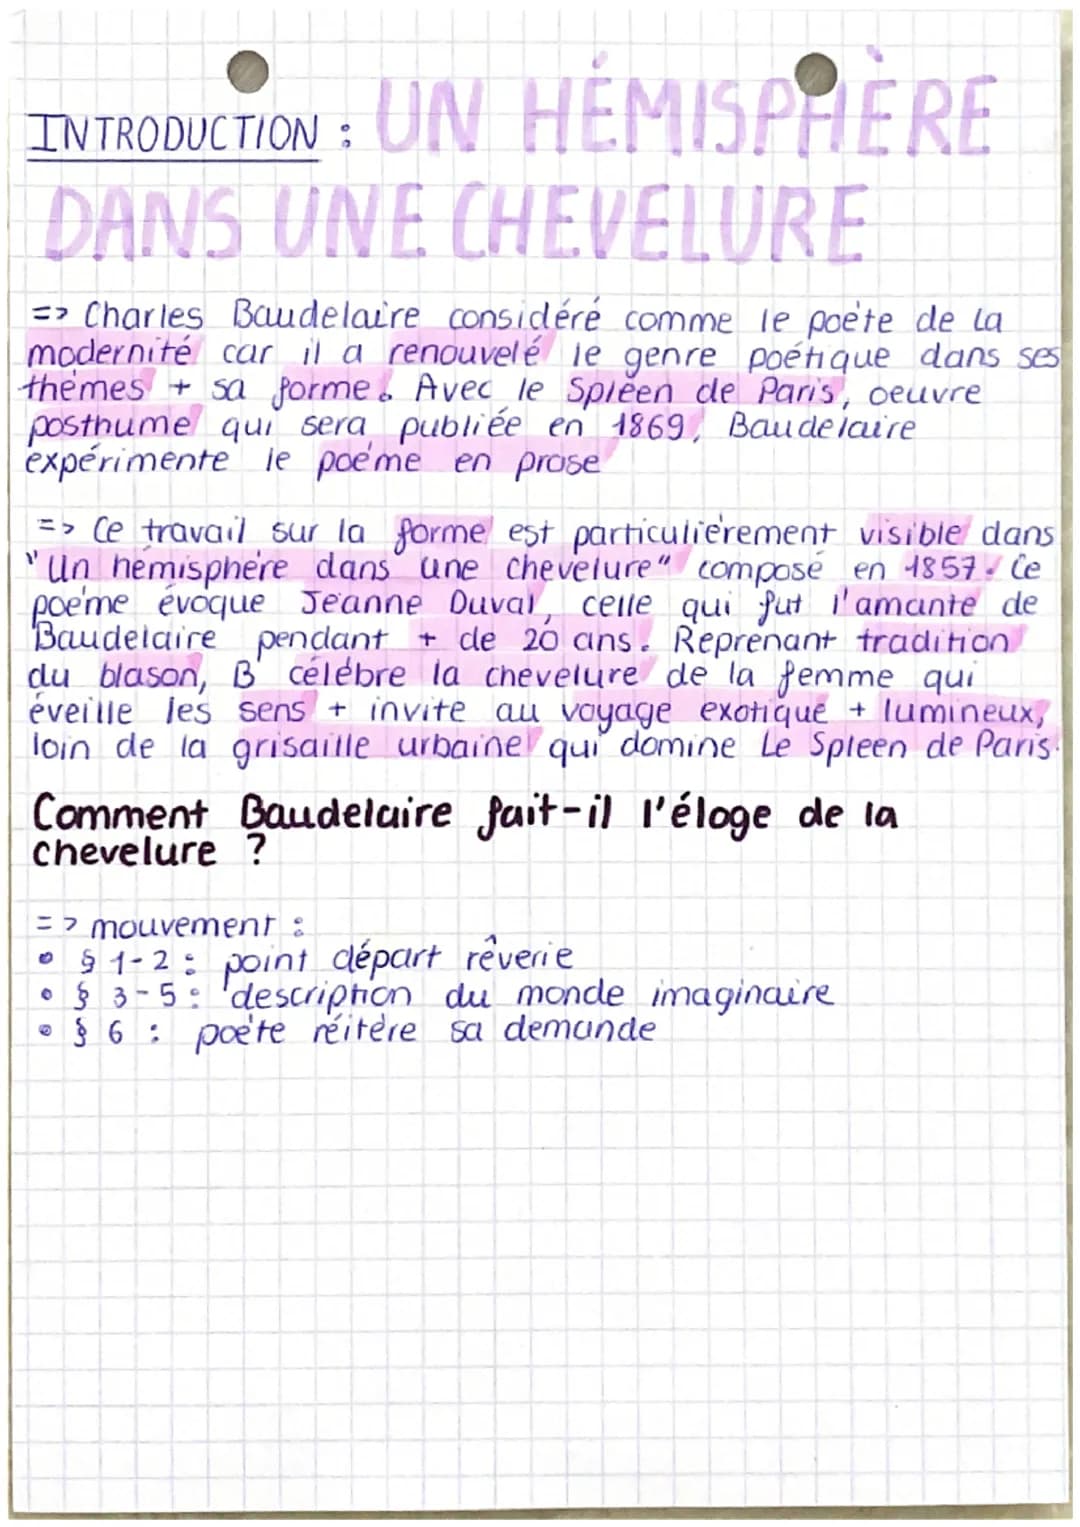 INTRODUCTION : UN HÉMISPHÈRE
DANS UNE CHEVELURE
=> Charles Baudelaire considéré comme le poète de la
modernité car il a renouvelé le genre poétique dans ses
thèmes + sa forme. Avec le Spleen de Paris, oeuvre
posthume qui sera publiée en 1869, Baudelaire
expérimente le poème en prose
=> Ce travail sur la forme est particulièrement visible dans
"Un hémisphère dans une chevelure" composé en 1857. Ce
poème évoque Jeanne Duval, celle qui fut l'amante de
Baudelaire pendant + de 20 ans. Reprenant tradition
du blason, B célèbre la chevelure de la femme qui
éveille les sens + invite au voyage exotique + lumineux,
loin de la grisaille urbaine qui domine Le Spleen de Paris.
Comment Baudelaire fait-il l'éloge de la
chevelure ?
=> mouvement :
• § 1-2 : point départ rêverie
• § 3-5 : description du monde imaginaire
• § 6 : poète réitère sa demande